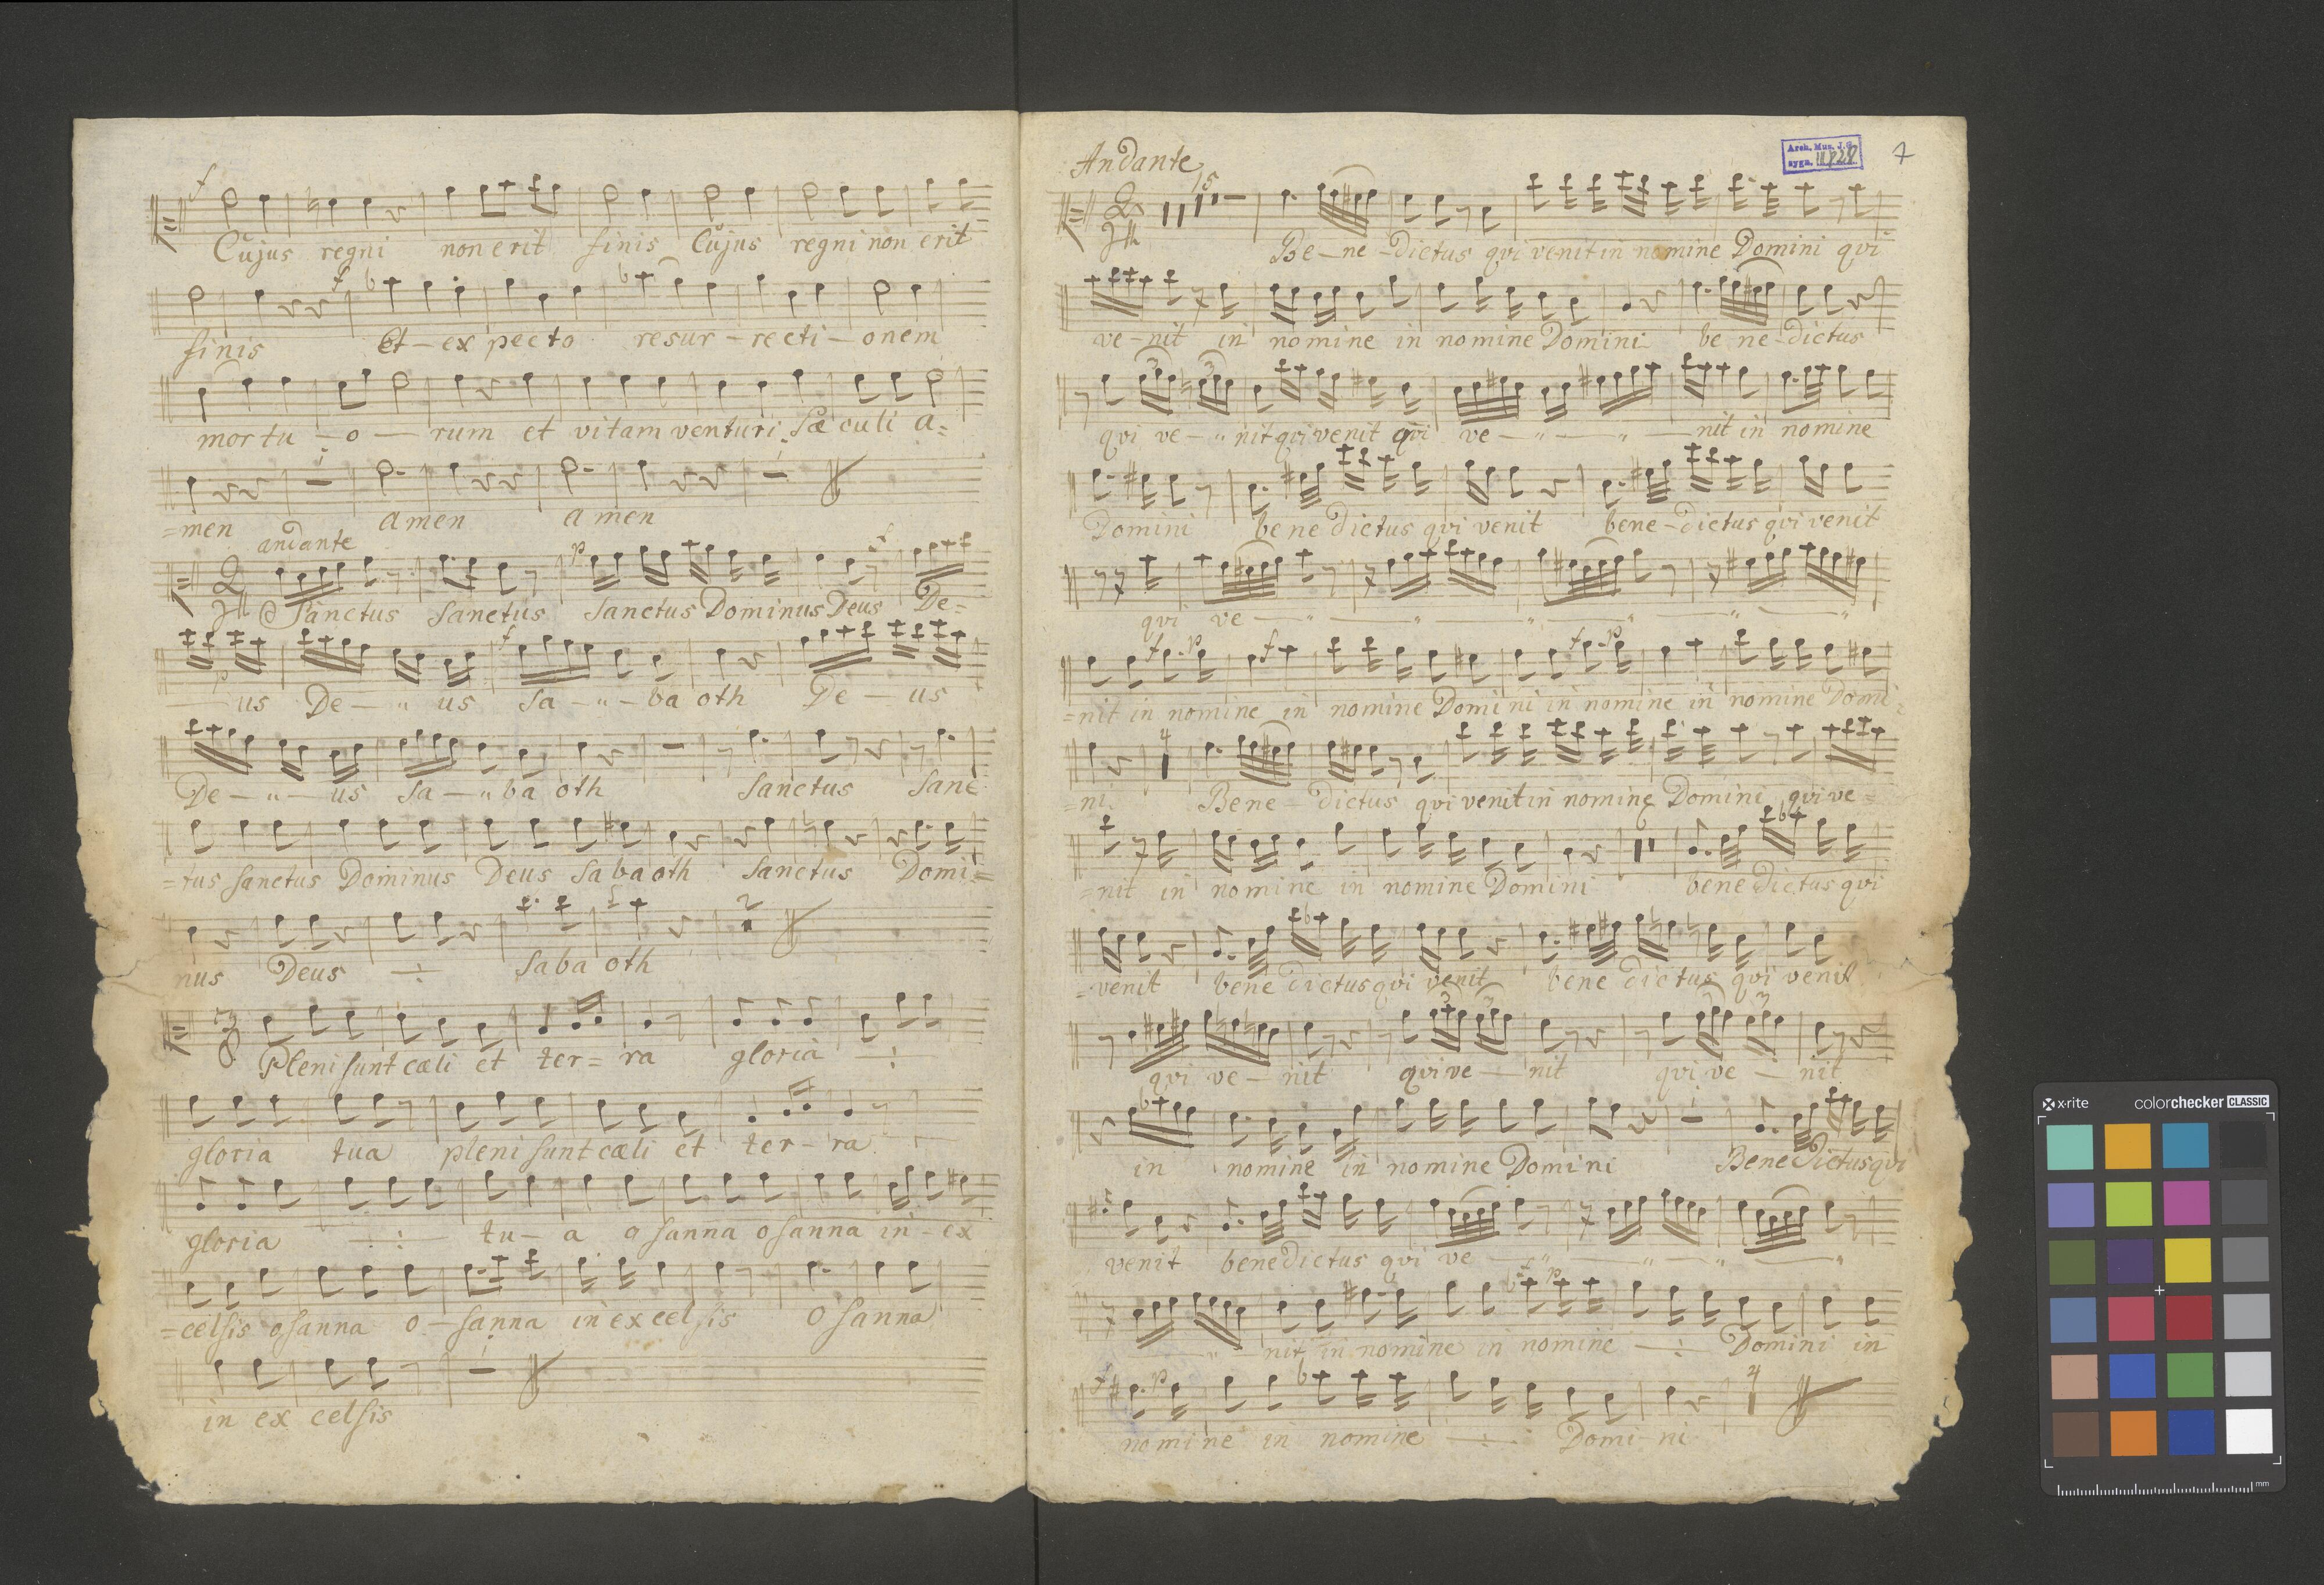 f
Cujus regni non erit finis Cujus regni non erit
f
finis Et - expecto resur - recti - onem
mor tu - o - rum et vitam venturi Sæculi a=
=men amen amen
andante
p f
Sanctus Sanctus Sanctus Dominus Deus De=
p f
us De - " us Sa - " - ba oth De - us
De - " - us Sa - " ba oth Sanctus Sanc
=tus Sanctus Dominus Deus Sabaoth Sanctus Domi=
2
nus Deus ÷ Saba oth
3
8
Pleni sunt cæli et ter = ra gloria ÷
gloria tua pleni sunt cæli et ter - ra
gloria ÷ tu - a osanna osanna in - ex
=celsis osanna o - sanna in excelsis O sanna
in ex celsis
Arch. Mus. J.G.
sygn.
7
Andante
15
Be - ne - dictus qui venit in nomine Domini qui
ve - nit in nomine in nomine Domini be ne - dictus
3 3
qui ve - " nit qui venit qui ve - " - " - nit in nomine
Domini bene dictus qui venit bene - dictus qui venit
qui ve - " - " - " - " - " - "
f p f f p
=nit in nomine in nomine Domini in nomine in nomine Domi=
4
=ni. Bene - dictus qui venit in nomine Domini qui ve=
=nit in nomine in nomine Domini bene dictus qui
=venit bene dictus qui venit bene dictus qui venit
3 3 3 3
qui ve - nit qui ve - nit qui ve - nit
in nomine in nomine Domini Bene dictus qui
venit benedictus qui ve - " - " - " - "
f p
" - nit in nomine in nomine - ÷ Domini in
f p 4
nomine in nomine - ÷ Domi - ni